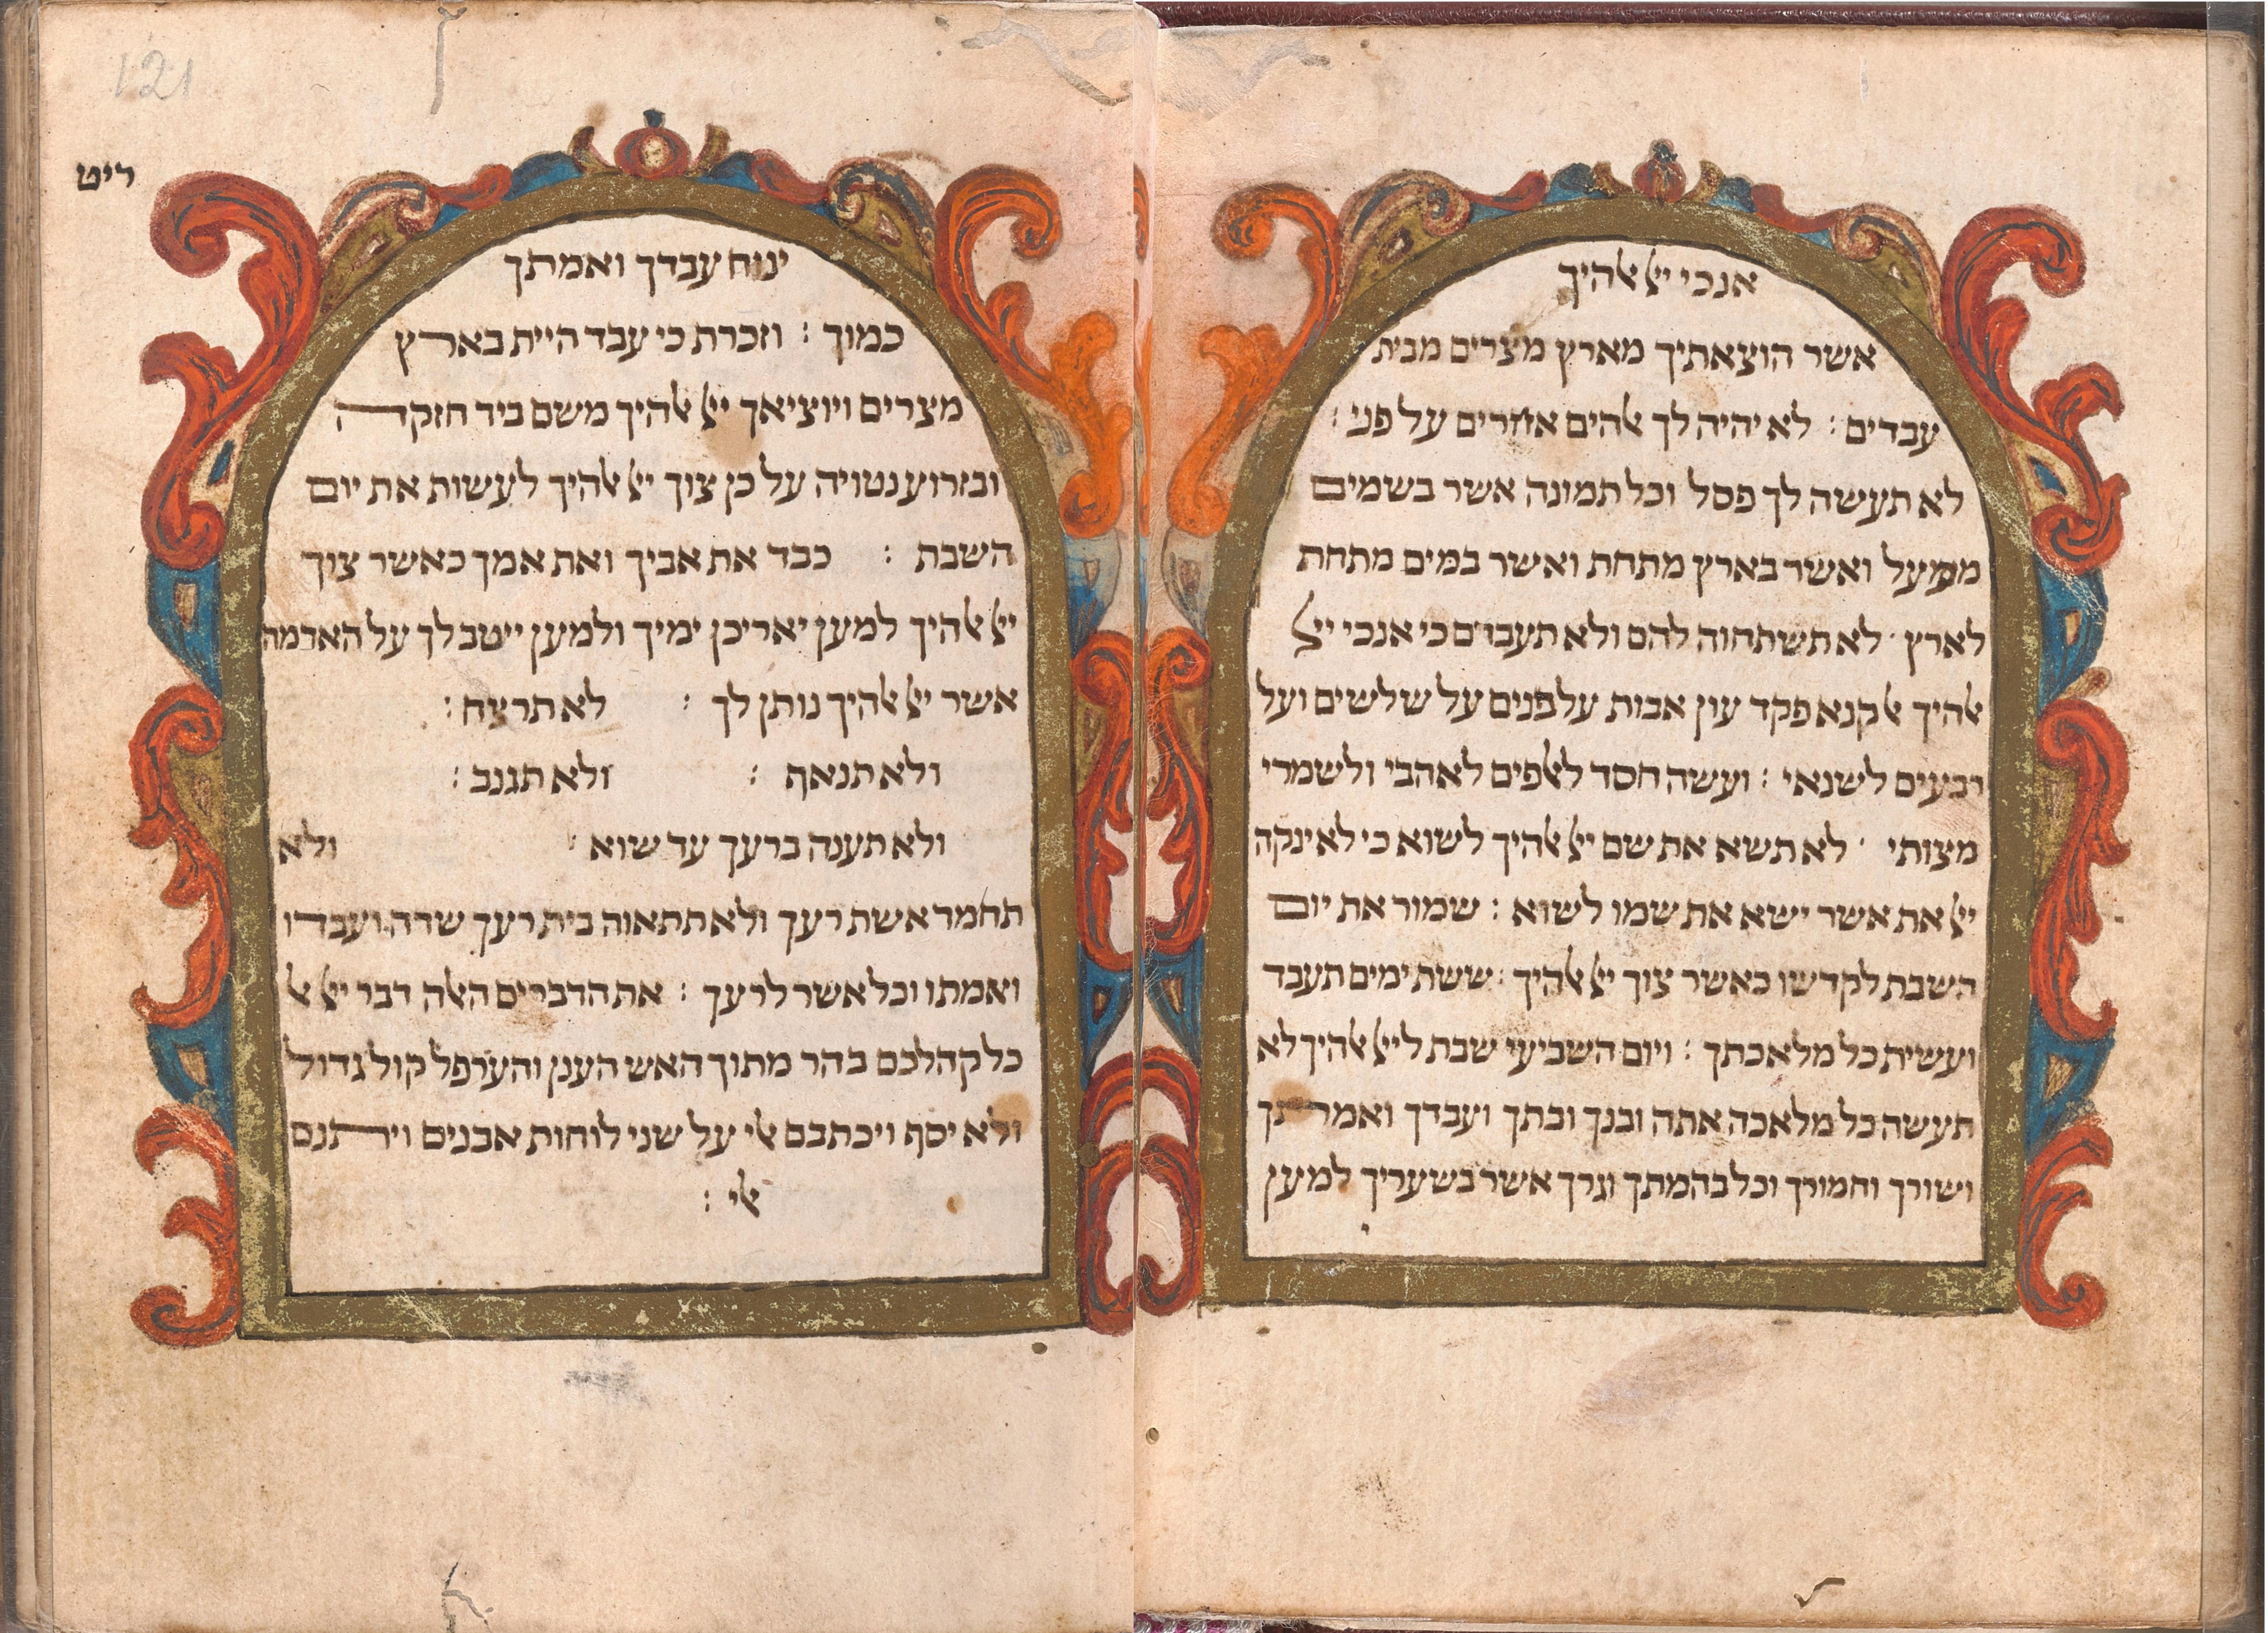 אנכי יﭏ ﭏהיך
אשר הוצאתיך מארץ מצרים מבית
עבדים : לא יהיה לך ﭏהים אחרים על פני :
לא תעשה לך פסל וכל תמונה אשר בשמים
ממעל ואשר בארץ מתחת ואשר במים מתחת
לארץ · לא תשתחוה להם ולא תעבדם כי אנכי יﭏ
ﭏהיך ﭏ קנא פקד עון אבות על פנים על שלשים ועל
רבעים לשנאי : ועשה חסד לﭏפים לאהבי ולשמרי
מצותי · לא תשא את שם יﭏ ﭏהיך לשוא כי לא ינקה
יﭏ את אשר ישא את שמו לשוא : שמור את יום
השבת לקדשו כאשר צוך יﭏ ﭏהיך : ששת ימים תעבד
ועשית כל מלאכתך : ויום השביעי שבת ליﭏ ﭏהיך לא
תעשה כל מלאכה אתה ובנך ובתך ועבדך ואמתך
ושורך וחמורך וכל בהמתך וגרך אשר בשעריך למען
121
ריט
ינוח עבדך ואמתך
כמוך : וזכרת כי עבד היית בארץ
מצרים ויוציאך יﭏ ﭏהיך משם ביד חזקה
ובזרוע נטויה על כן צוך יﭏ ﭏהיך לעשות את יום
השבת : כבד את אביך ואת אמך כאשר צוך
יﭏ ﭏהיך למען יאריכן ימיך ולמען ייטב לך על האדמה
אשר יﭏ ﭏהיך נותן לך : לא תרצח :
ולא תנאף : ולא תגנב :
ולא תענה ברעך עד שוא : ולא
תחמד אשת רעך ולא תתאוה בית רעך שדהו ועבדו
ואמתו וכל אשר לרעך : את הדברים הﭏה דבר יﭏ ﭏ
כל קהלכם בהר מתוך האש הענן והערפל קול גדול
ולא יסף ויכתבם ﭏי על שני לוחות אבנים ויתנם
ﭏי :